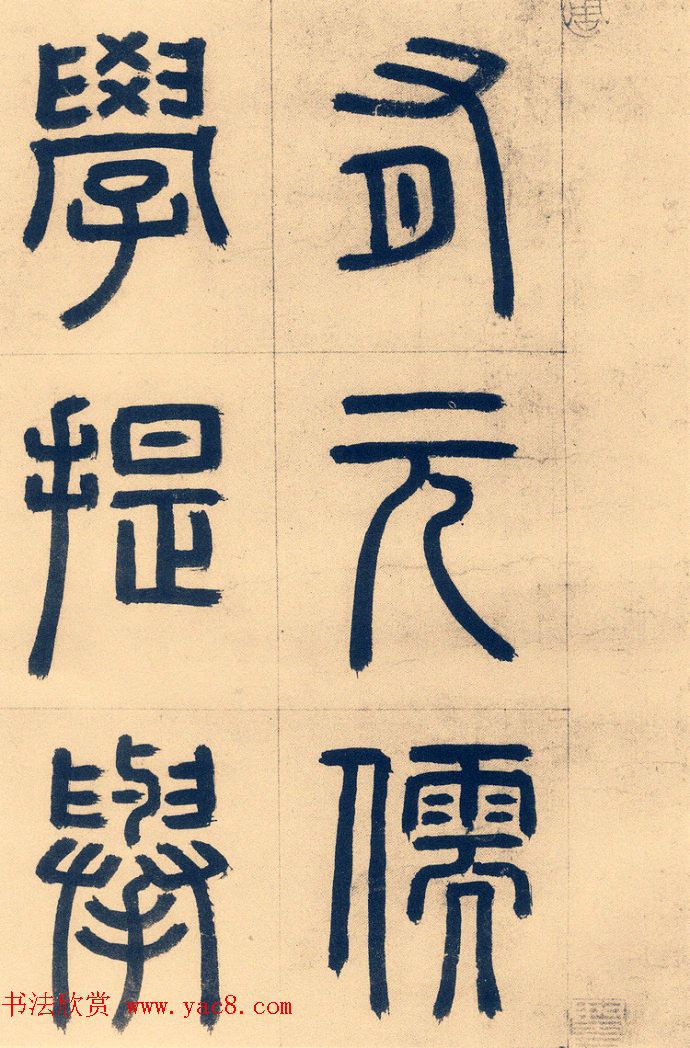 有元儒
學提舉
书法欣赏 www.yac8.com